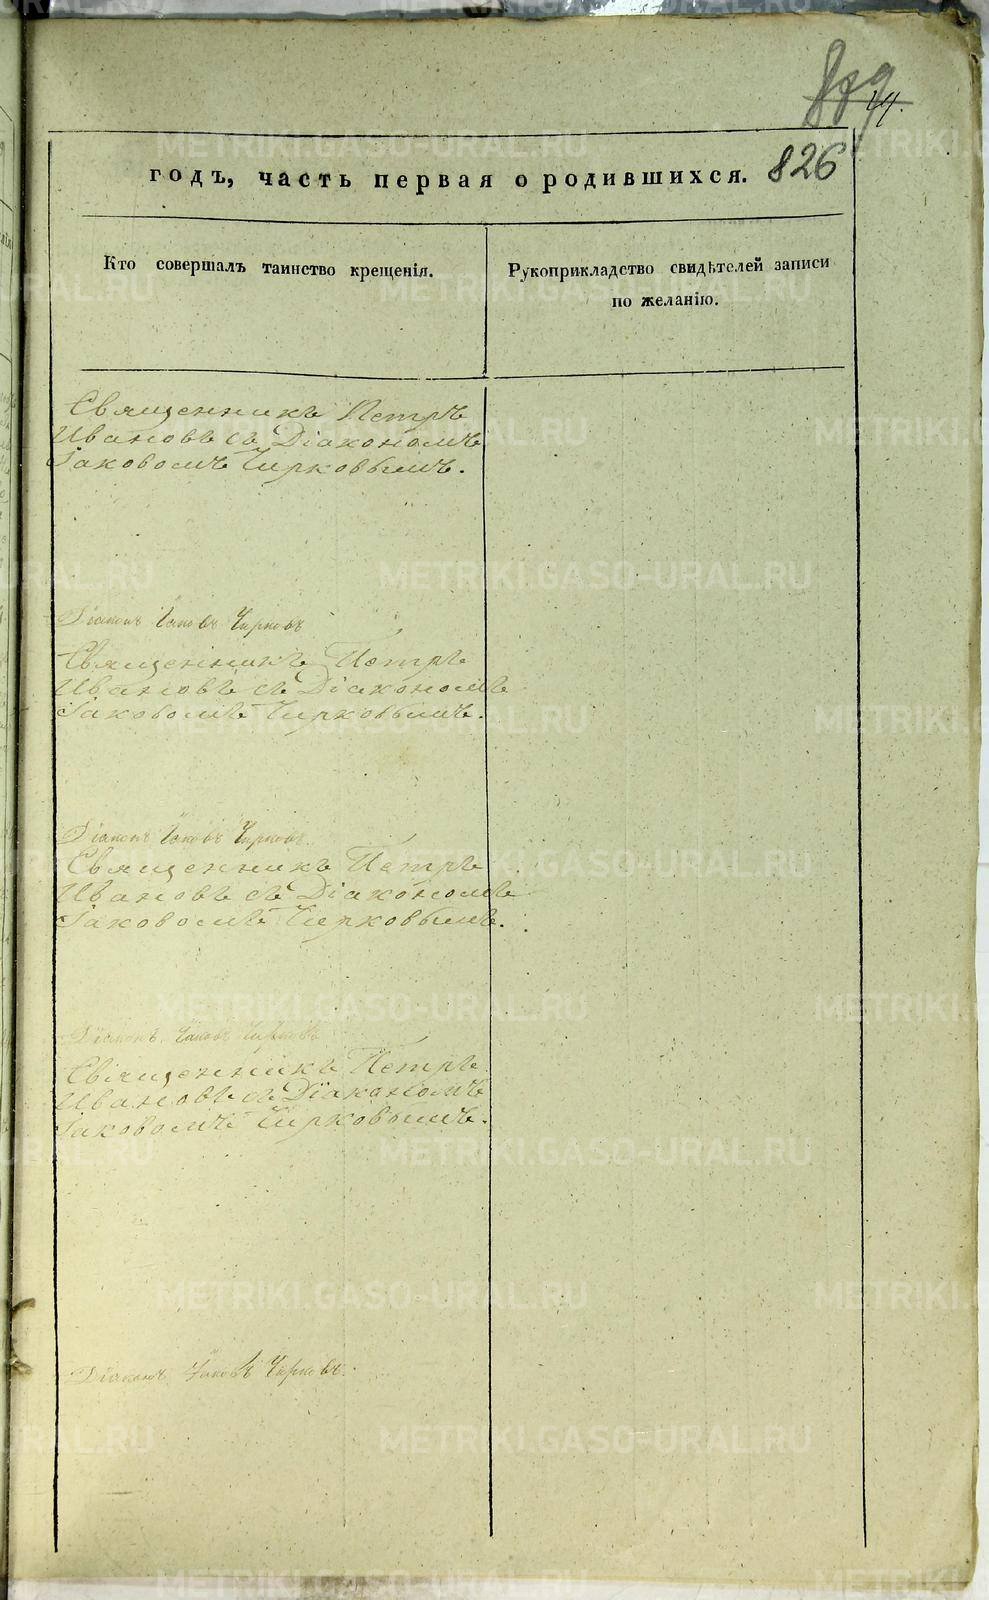 826
годъ, часть первая о родившихся.
Кто совершалъ таинство крещенія.
Рукоприкладство свидѣтелей записи
по желанію.
Священникъ Петръ
Ивановъ съ Діакономъ
Іаковомъ Чирковымъ.
Діаконъ Іаковъ Чирковъ
Священникъ Петръ
Ивановъ съ Діакономъ
Іаковомъ Чирковымъ.
Діаконъ Іаковъ Чирковъ.
Священникъ Петръ
Ивановъ съ Діакономъ
Іаковомъ Чирковымъ.
Діаконъ Іаковъ Чирковъ
Священникъ Петръ
Ивановъ съ Діакономъ
Іаковомъ Чирковымъ.
Діаконъ Іаковъ Чирковъ.
METRIKI.GASO-URAL.RU